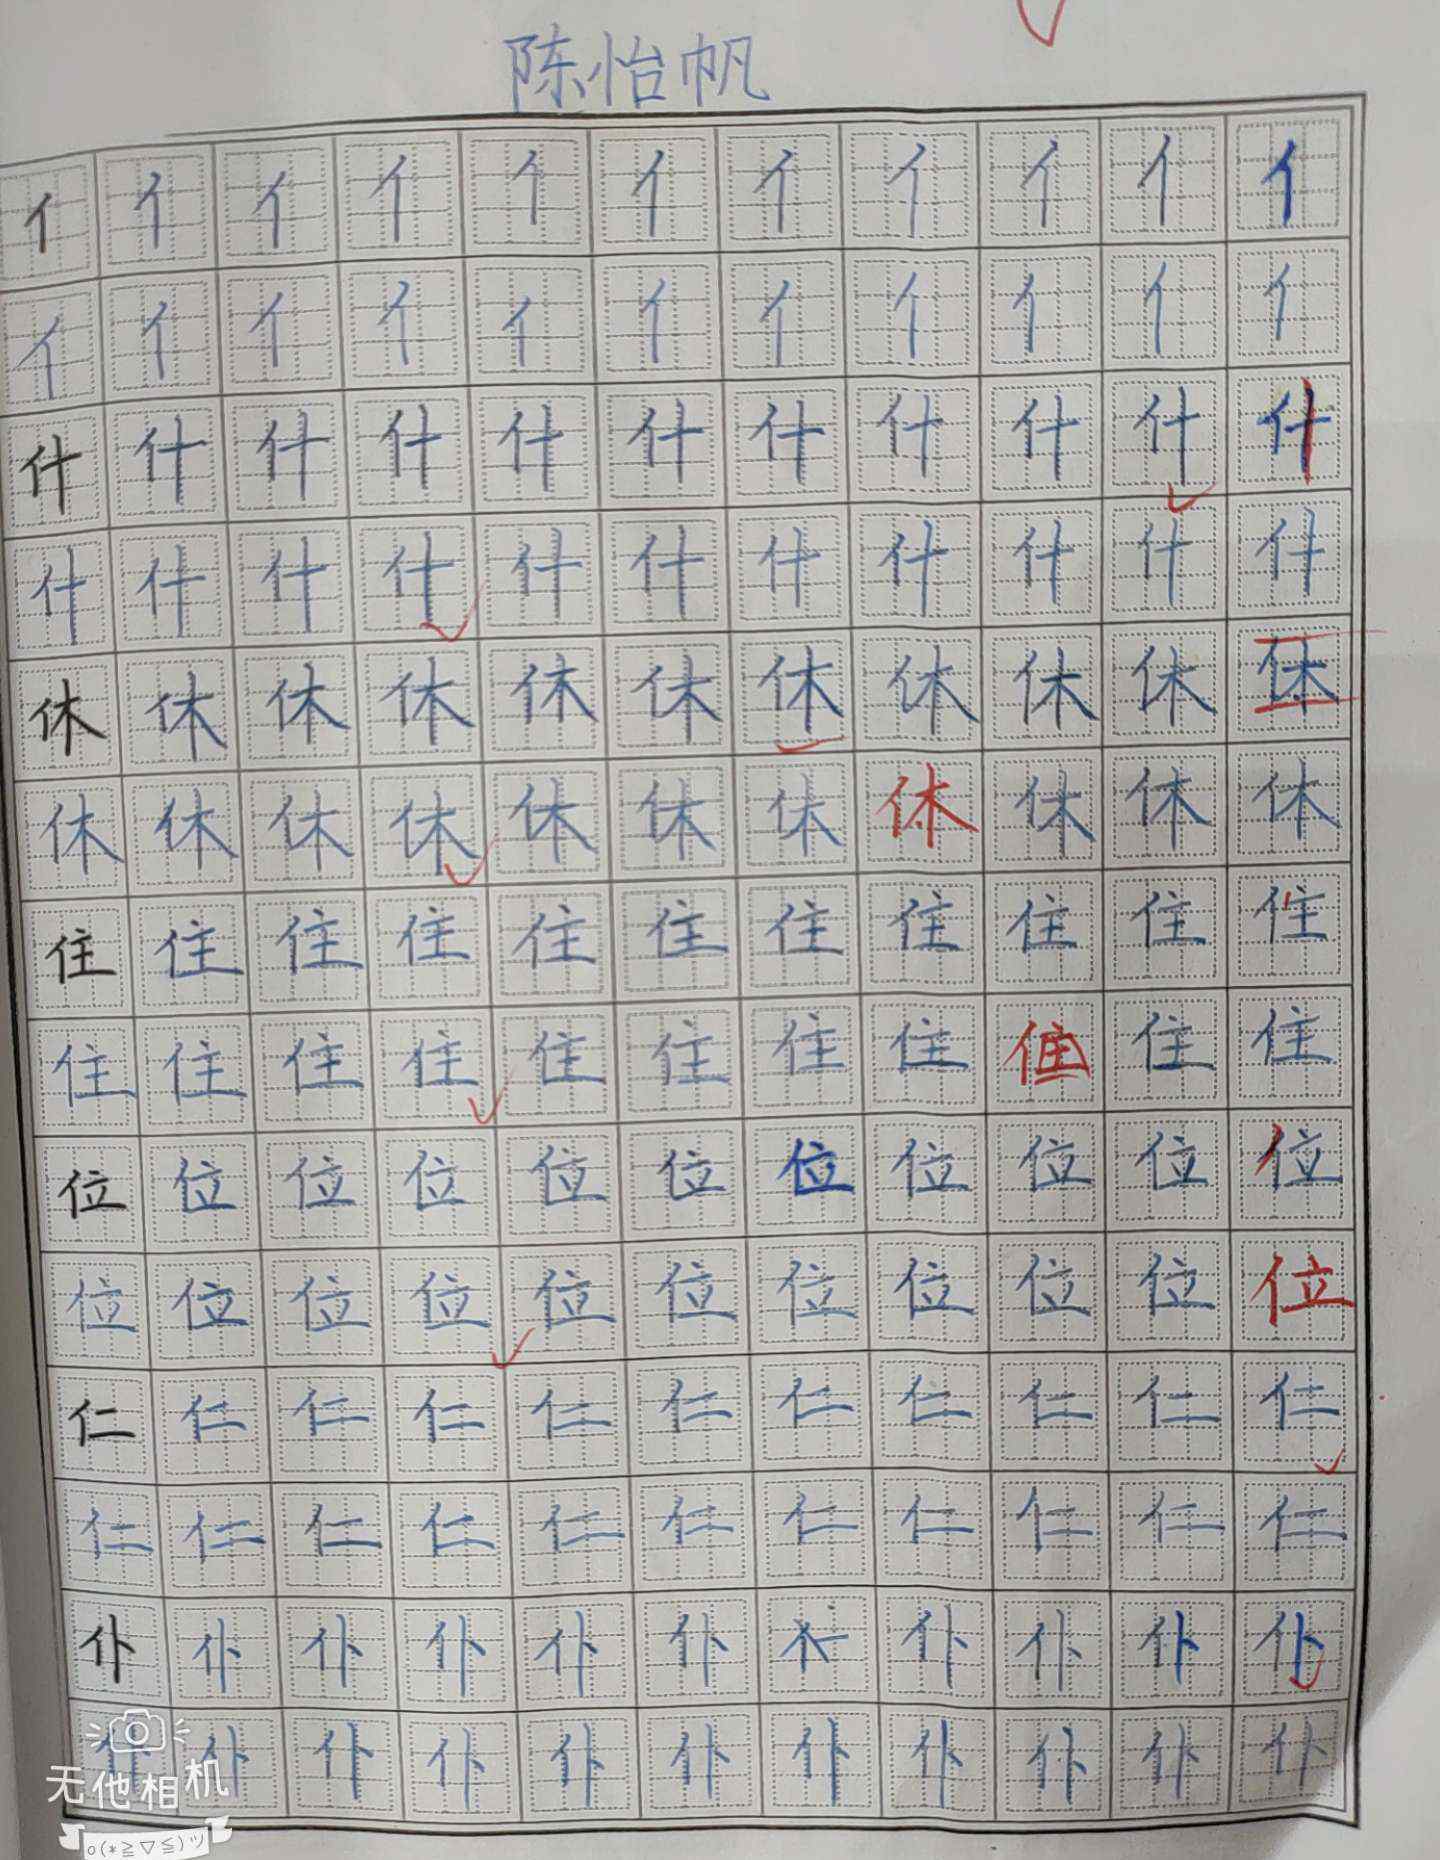 陈怡帆
亻亻亻亻亻亻亻亻亻亻亻
亻亻亻亻亻亻亻亻亻亻亻
什什什什什什什什什什什
什什什什什什什什什什什
休休休休休休休休休休休
休休休休休休休休休休休
住住住住住住住住住住住
住住住住住住住住住住住
位位位位位位位位位位位
位位位位位位位位位位位
仁仁仁仁仁仁仁仁仁仁仁
仁仁仁仁仁仁仁仁仁仁仁
仆仆仆仆仆仆仆仆仆仆仆
仆仆仆仆仆仆仆仆仆仆仆
无他相机
o(*≧▽≦)ツ